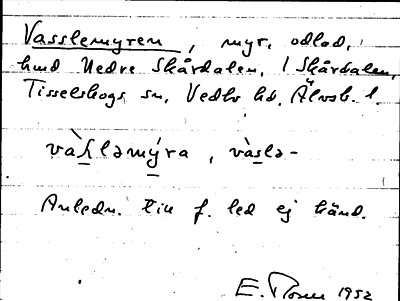 Vasslemyren, myr, odlad,
hmd Nedre Skårdalen, 1 Skårdalen,
Tisselskogs sn, Vedbo hd, Älvsb. l.
vàſ̱ləmý̱ra, vàs̱lə-
Anledn. till f. led ej känd.
E. 1952